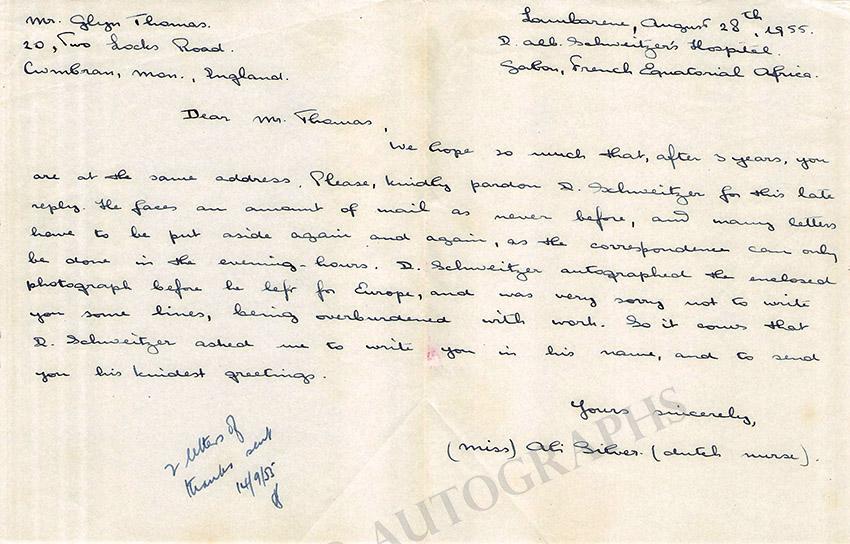 Mr. Glyn Thomas.
20, Two Locks Road.
Cwmbran, Mon., England.
Lambarene, August 28th, 1955.
D. Alb. Schweitzer's Hospital.
Gabon, French Equatorial Africa.
Dear Mr. Thomas,
We hope so much that, after 3 years, you
are at the same address. Please, kindly pardon D. Schweitzer for this late
reply. He faces an amount of mail as never before, and many letters
have to be put aside again and again, as the correspondence can only
be done in the evening-hours. D. Schweitzer autographed the enclosed
photograph before he left for Europe, and was very sorry not to write
you some lines, being overburdened with work. So it comes that
D. Schweitzer asked me to write you in his name, and to send
you his kindest greetings.
Yours sincerely,
(Miss) Ali Silver. (dutch nurse).
2 letters of
thanks sent
14/9/55
AUTOGRAPHS